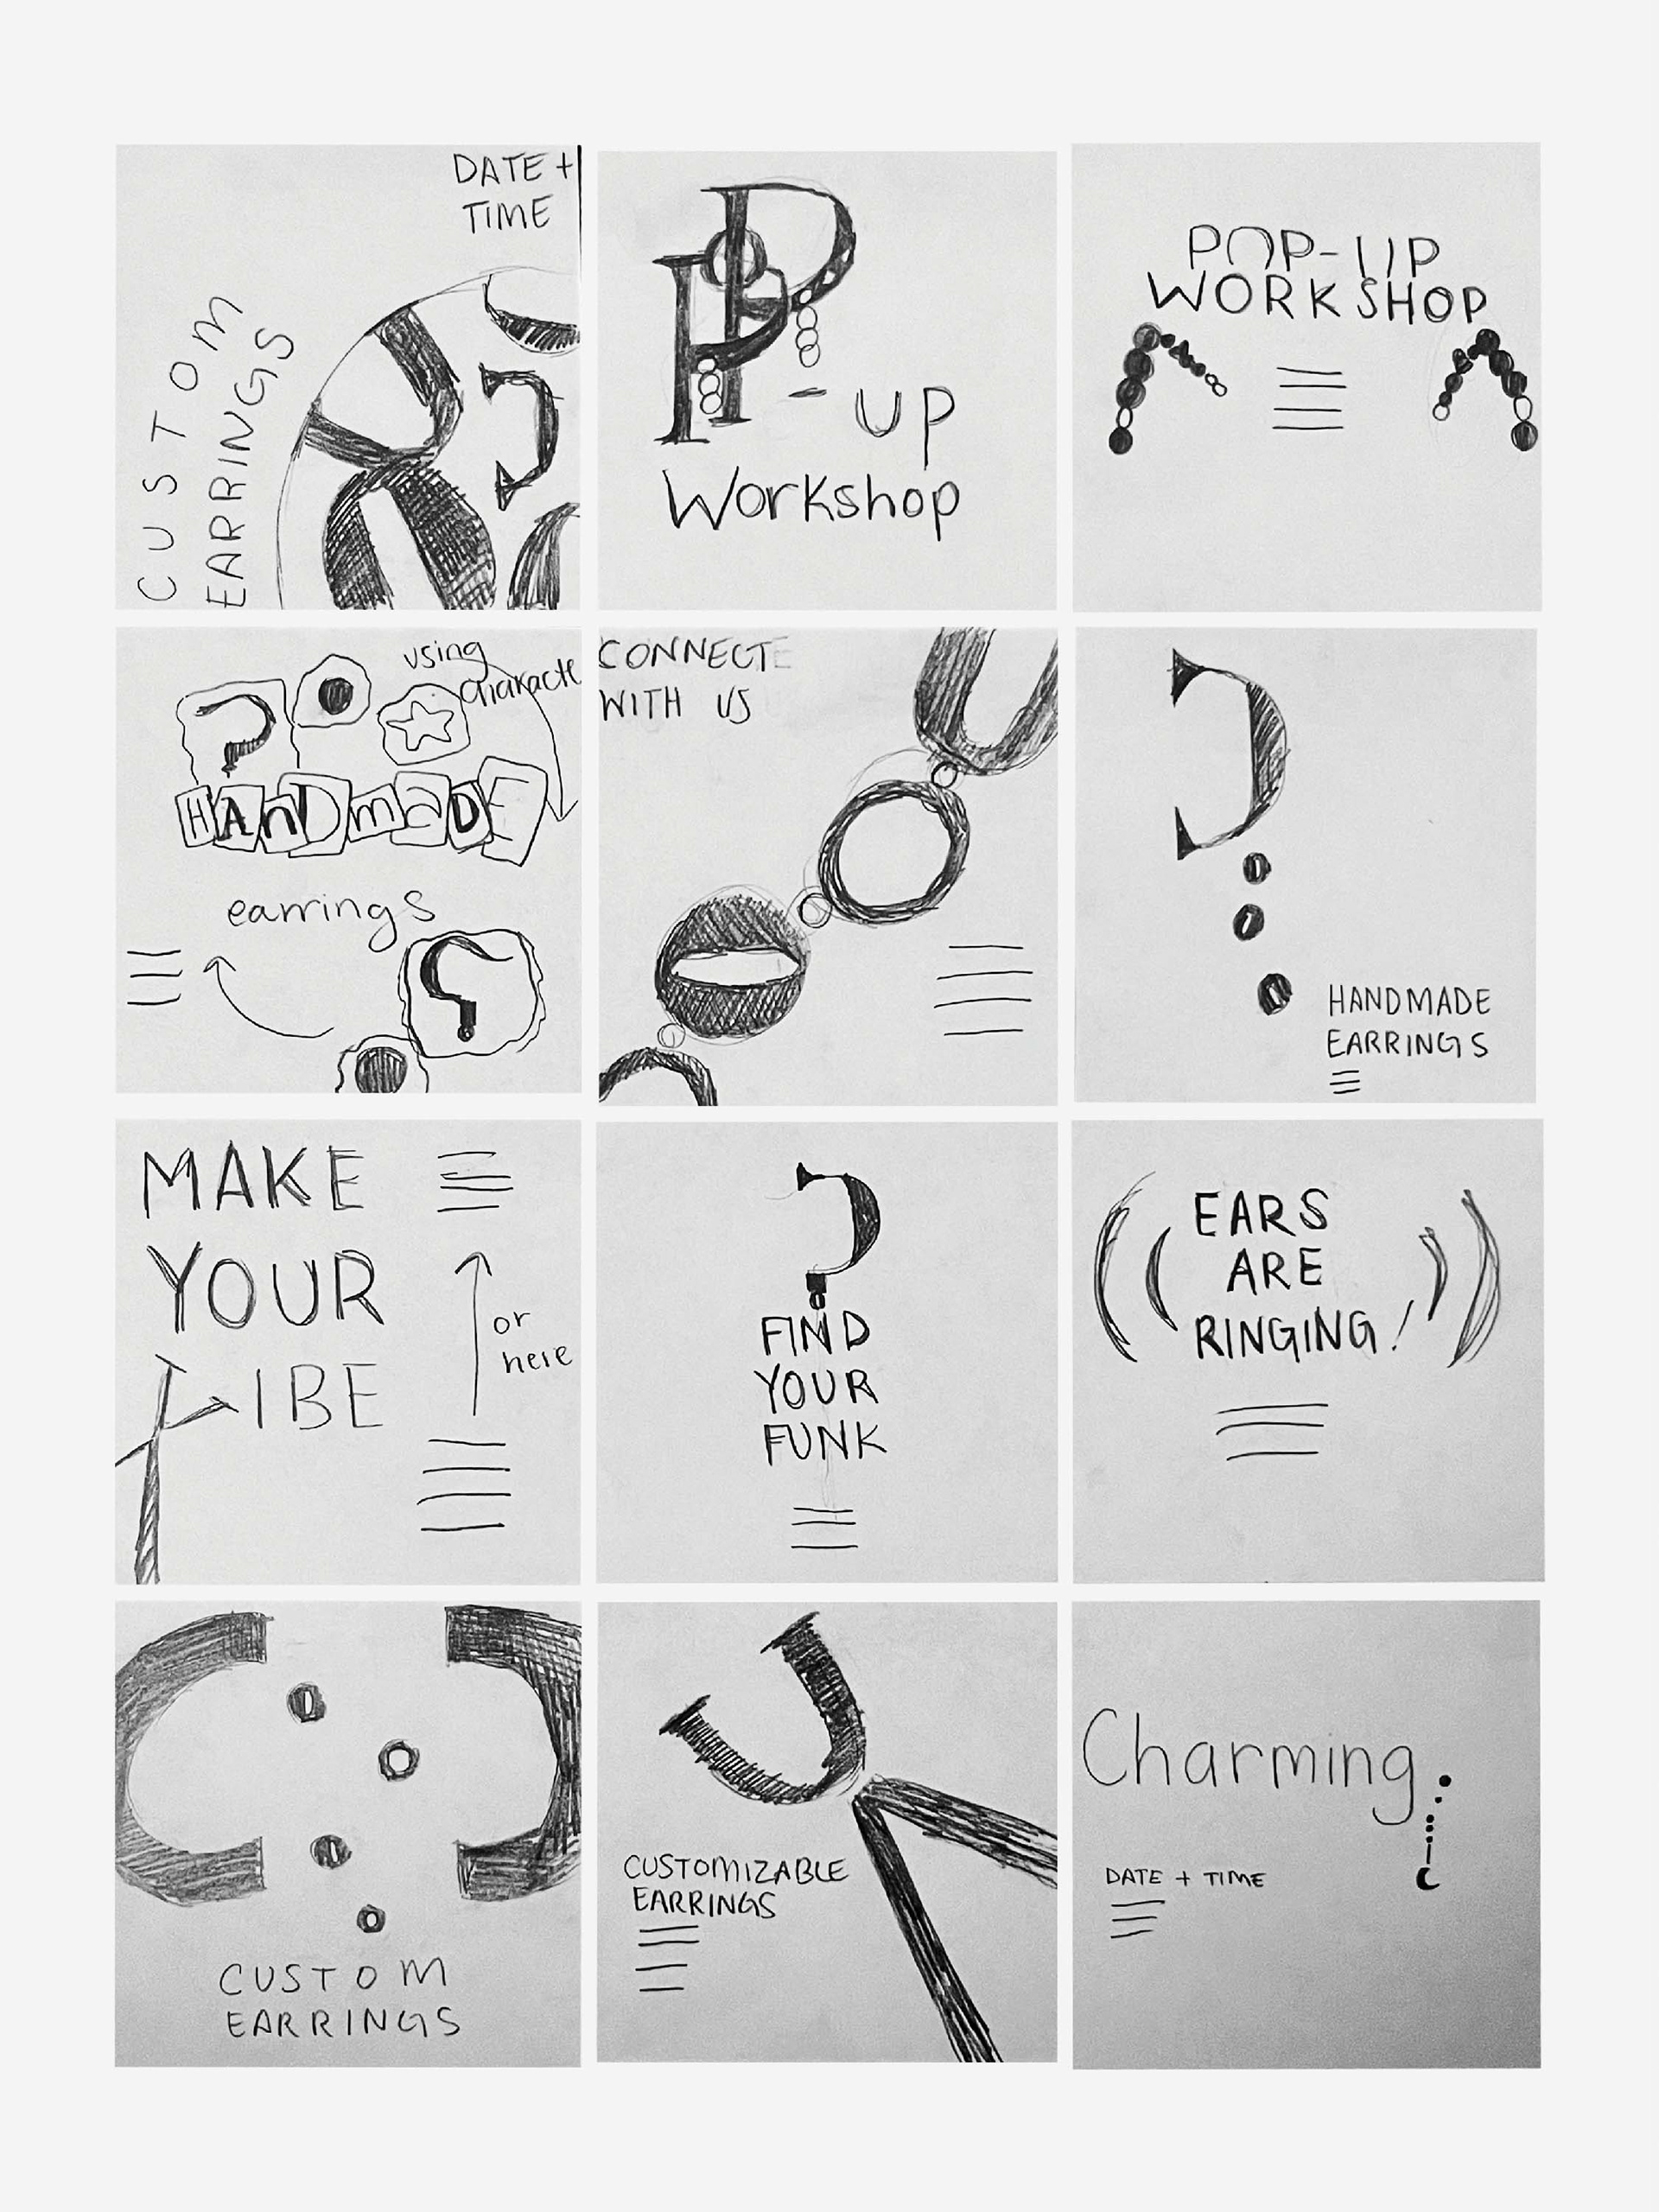 DATE +
TIME
CUSTOM
EARRINGS
PoP - up
Workshop
POP-UP
WORKSHOP
using
HAnDmaDE
earrings
CONNECT
WITH US
HANDMADE
EARRINGS
MAKE
YOUR
VIBE
or
here
FIND
YOUR
FUNK
EARS
ARE
RINGING!
CUSTOM
EARRINGS
CUSTOMIZABLE
EARRINGS
Charming
DATE + TIME